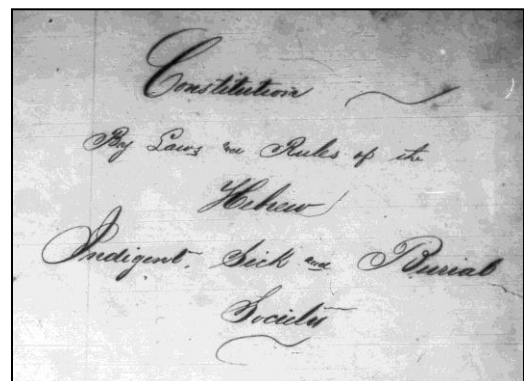 Constitution
By Laws and Rules of the
Hebrew
Indigent. Sick and Burial
Society